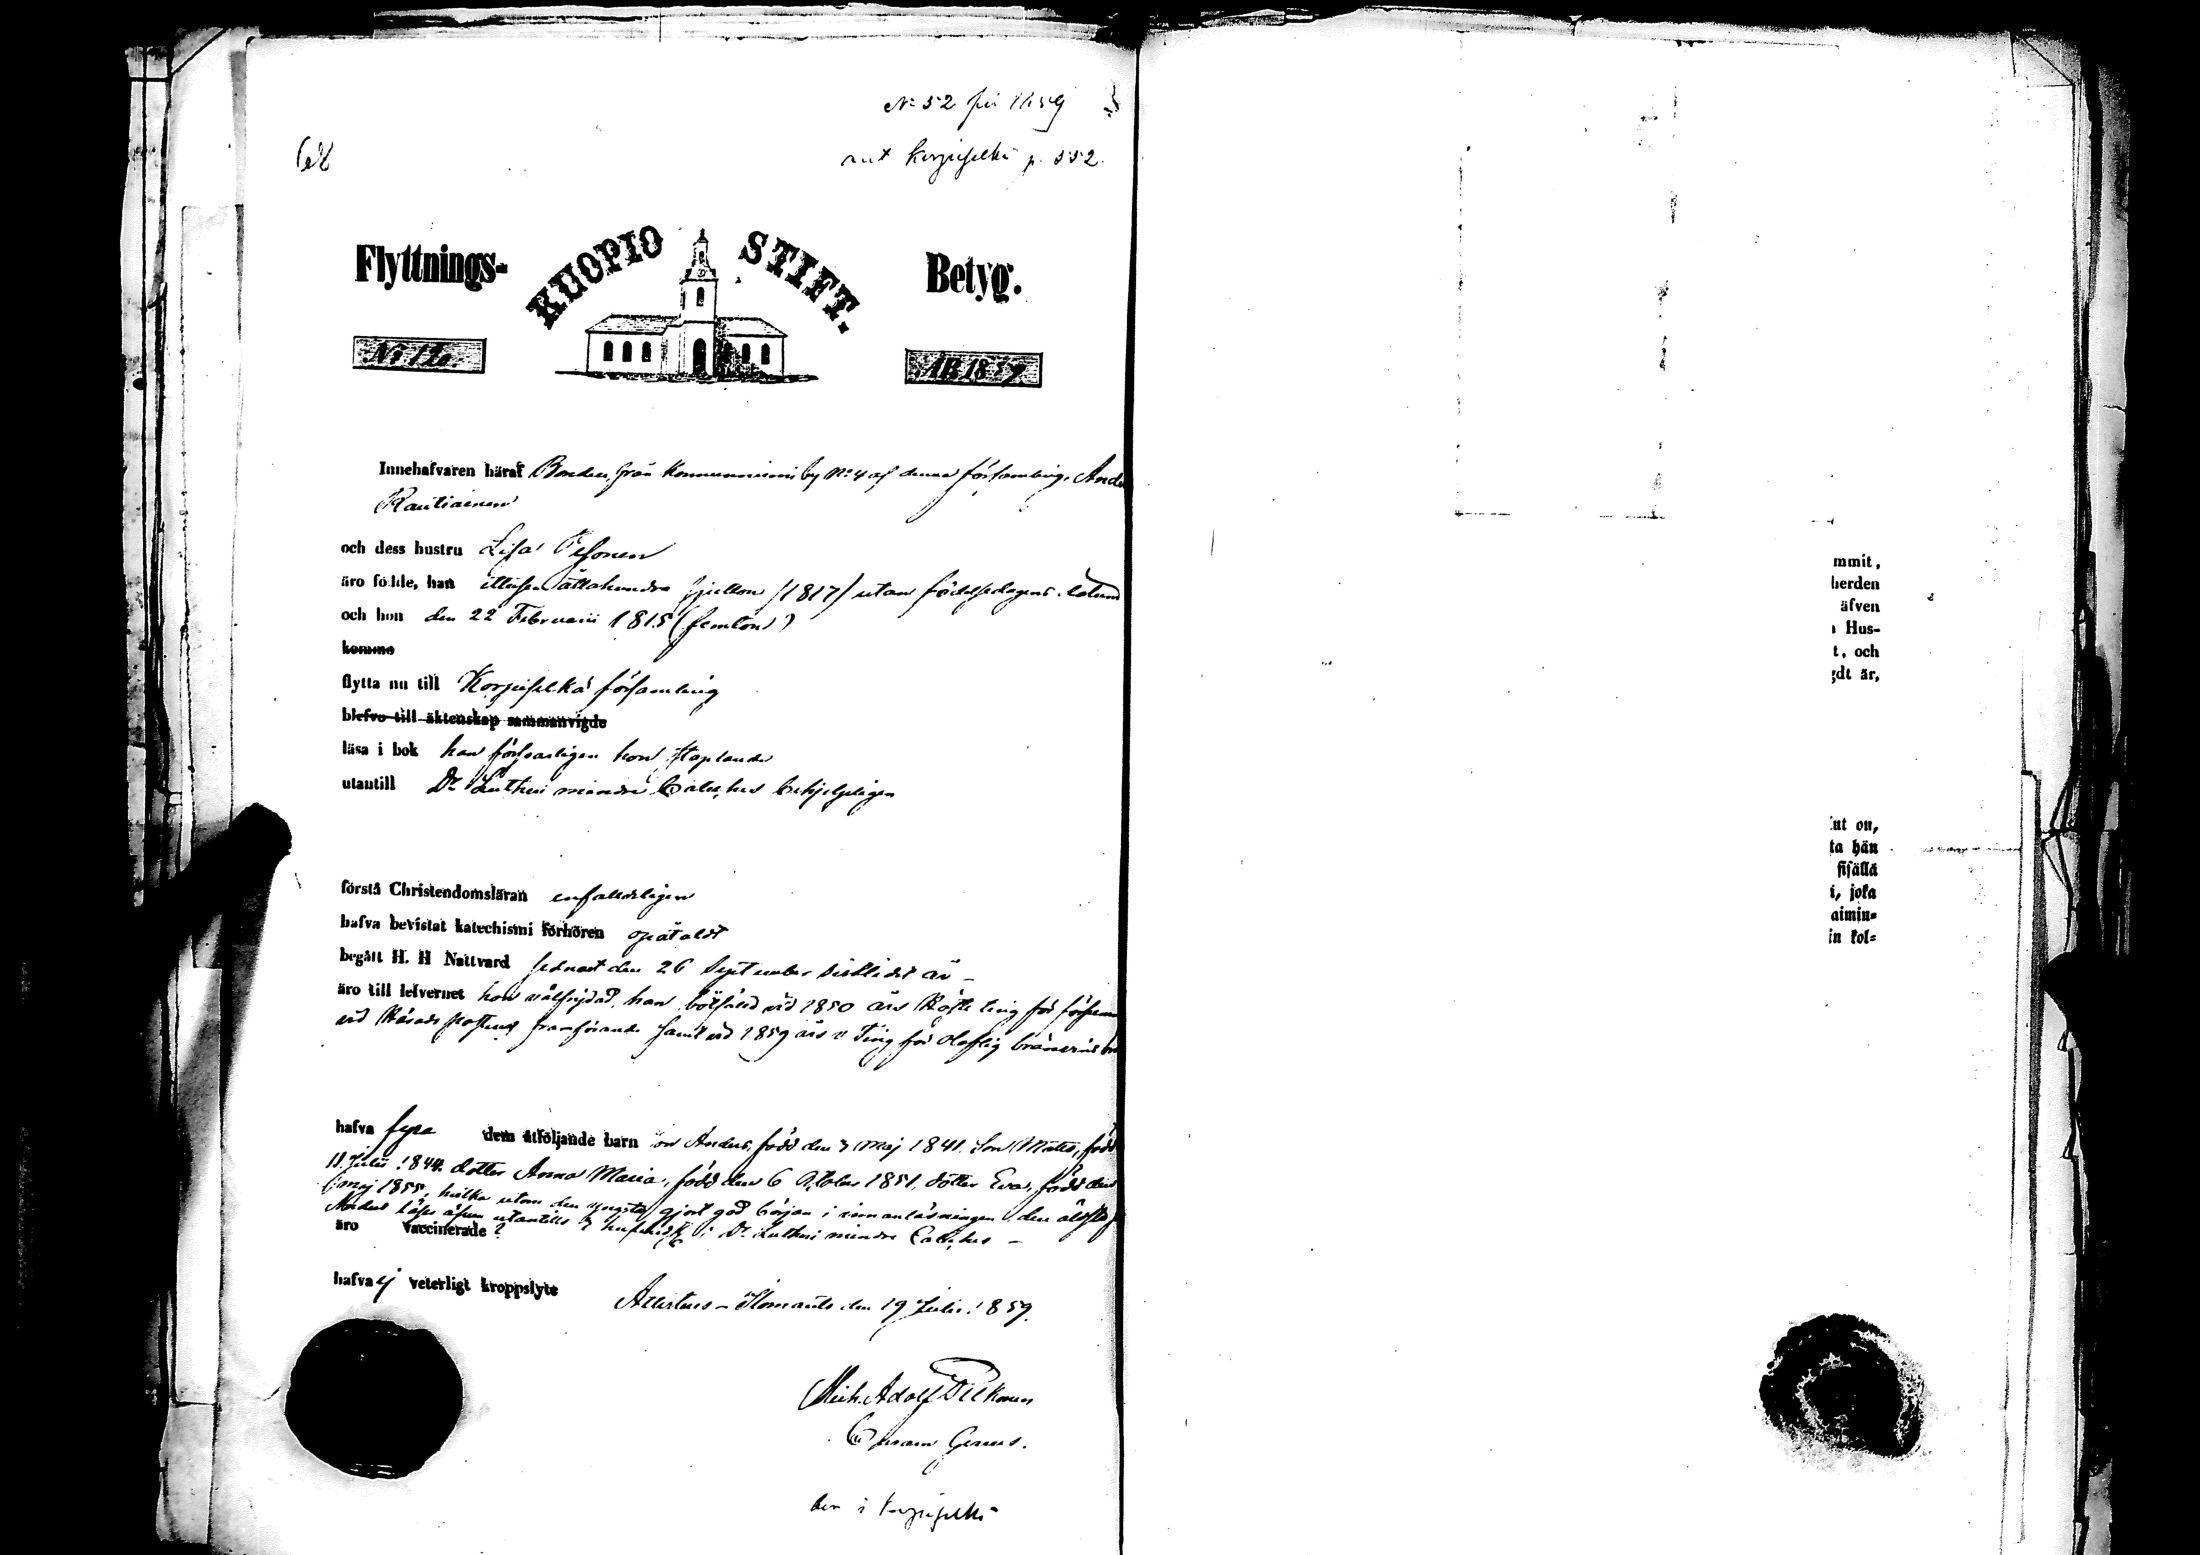 No 52 för 1859
ant Korpiselkä p. 552.
68
Flyttnings- KUOPIO STIFT. Betyg.
No 116. AB 1859
Innehafvaren häraf Bonden från Konnunniemi by No 4 af denna församling, And
Rautiainen
och dess hustru Lisa Pesonen
äro födde, han ettusen åttahundra sjutton /1817/ utan födelsedagens
och hon den 22 Februarii 1815 (femton)
komma
flytta nu till Korpiselkä församling
blefvo till äktenskap sammanvigde
läsa i bok han försvarligen hon staplande
utantill Dr Lutheri mindre Cateches behjelpligen
förstå Christendomsläran enfalldeligen
hafva bevistat katechismi förhören opåtaldt
begått H. H Nattvard sednast den 26 September sistlidet år –
äro till lefvernet hon välfrejdad, han bötfälld vid 1850 års Höste ting för försum
vid Härads postens framförande samt vid 1859 års v Ting för olaflig bränvins
hafva fyra dem åtföljande barn son Anders, född den 3 Maj 1841. Son Matts, född
11 Julii 1844. dotter Anna Maria, född den 6 October 1851, dotter Eva, född den
6 maj 1855, hvilka utom den yngsta gjort god början i innanläsningen, den äldsta
Anders läser äfven utantill i Dr Lutheri mindre Cateches –
äro vaccinerade?
hafva ej veterligt kroppslyte
Attestus – Ilomants den 19 Julii 1859.
Mich. Adolf
Curam Gerens.
i Korpiselkä
mmit,
herden
äfven
Hus-
t, och
gdt är,
ut on,
ta hän
sisällä
i, joka
aimin-
in kol-